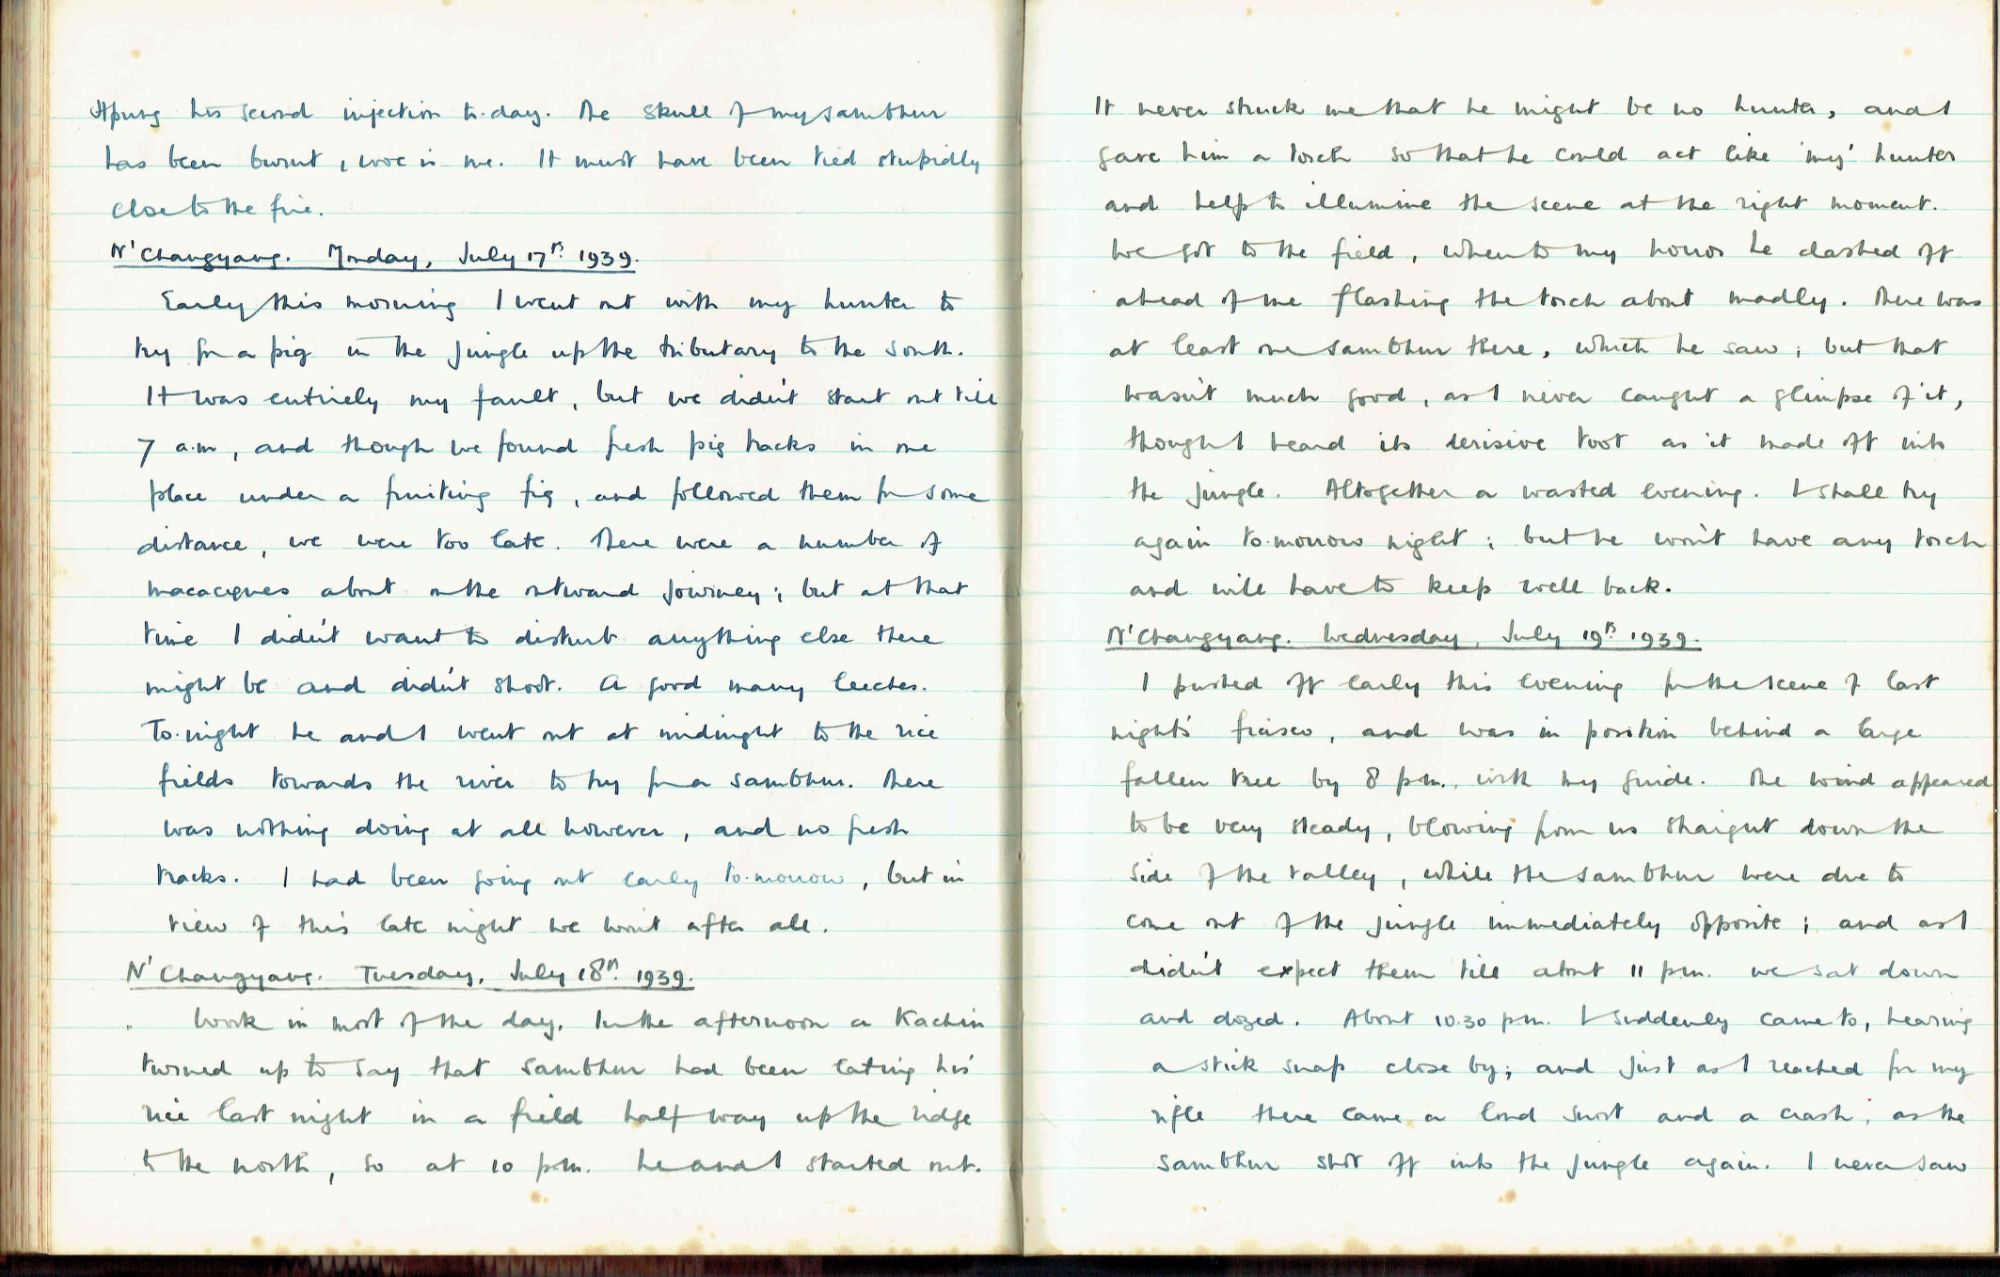 Hpung his second injection to-day. The skull of my sambhur
has been burnt, woe is me. It must have been tied stupidly
close to the fire.
N'Changyang. Monday, July 17th 1939.
Early this morning I went out with my hunter to
try for a pig in the jungle up the tributary to the south.
It was entirely my fault, but we didn't start out till
7 a.m, and though we found fresh pig tracks in one
place under a fruiting fig, and followed them for some
distance, we were too late. There were a number of
macacques about on the outward journey; but at that
time I didn't want to disturb anything else there
might be and didn't shoot. A good many leeches.
To-night he and I went out at midnight to the rice
fields towards the river to try for a sambhur. There
was nothing doing at all however, and no fresh
tracks. I had been going out early to-morrow, but in
view of this late night we won't after all.
N'Changyang. Tuesday, July 18th 1939.
Work in most of the day. In the afternoon a Kachin
turned up to say that sambhur had been eating his
rice last night in a field half way up the ridge
to the north, so at 10 p.m. he and I started out.
It never struck me that he might be no hunter, and I
gave him a torch so that he could act like 'my' hunter
and help to illumine the scene at the right moment.
We got to the field, when to my horror he dashed off
ahead of me flashing the torch about madly. There was
at least one sambhur there, which he saw; but that
wasn't much good, as I never caught a glimpse of it,
thought I heard its derisive toot as it made off into
the jungle. Altogether a wasted evening. I shall try
again to-morrow night; but he won't have any torch
and will have to keep well back.
N'Changyang. Wednesday, July 19th 1939.
I pushed off early this evening for the scene of last
night's fiasco, and was in position behind a large
fallen tree by 8 p.m., with my guide. The wind appeared
to be very steady, blowing from us straight down the
side of the valley, while the sambhur were due to
come out of the jungle immediately opposite; and as I
didn't expect them till about 11 p.m. we sat down
and dozed. About 10.30 p.m. I suddenly came to, hearing
a stick snap close by; and just as I reached for my
rifle there came a loud snort and a crash, as the
sambhur shot off into the jungle again. I never saw